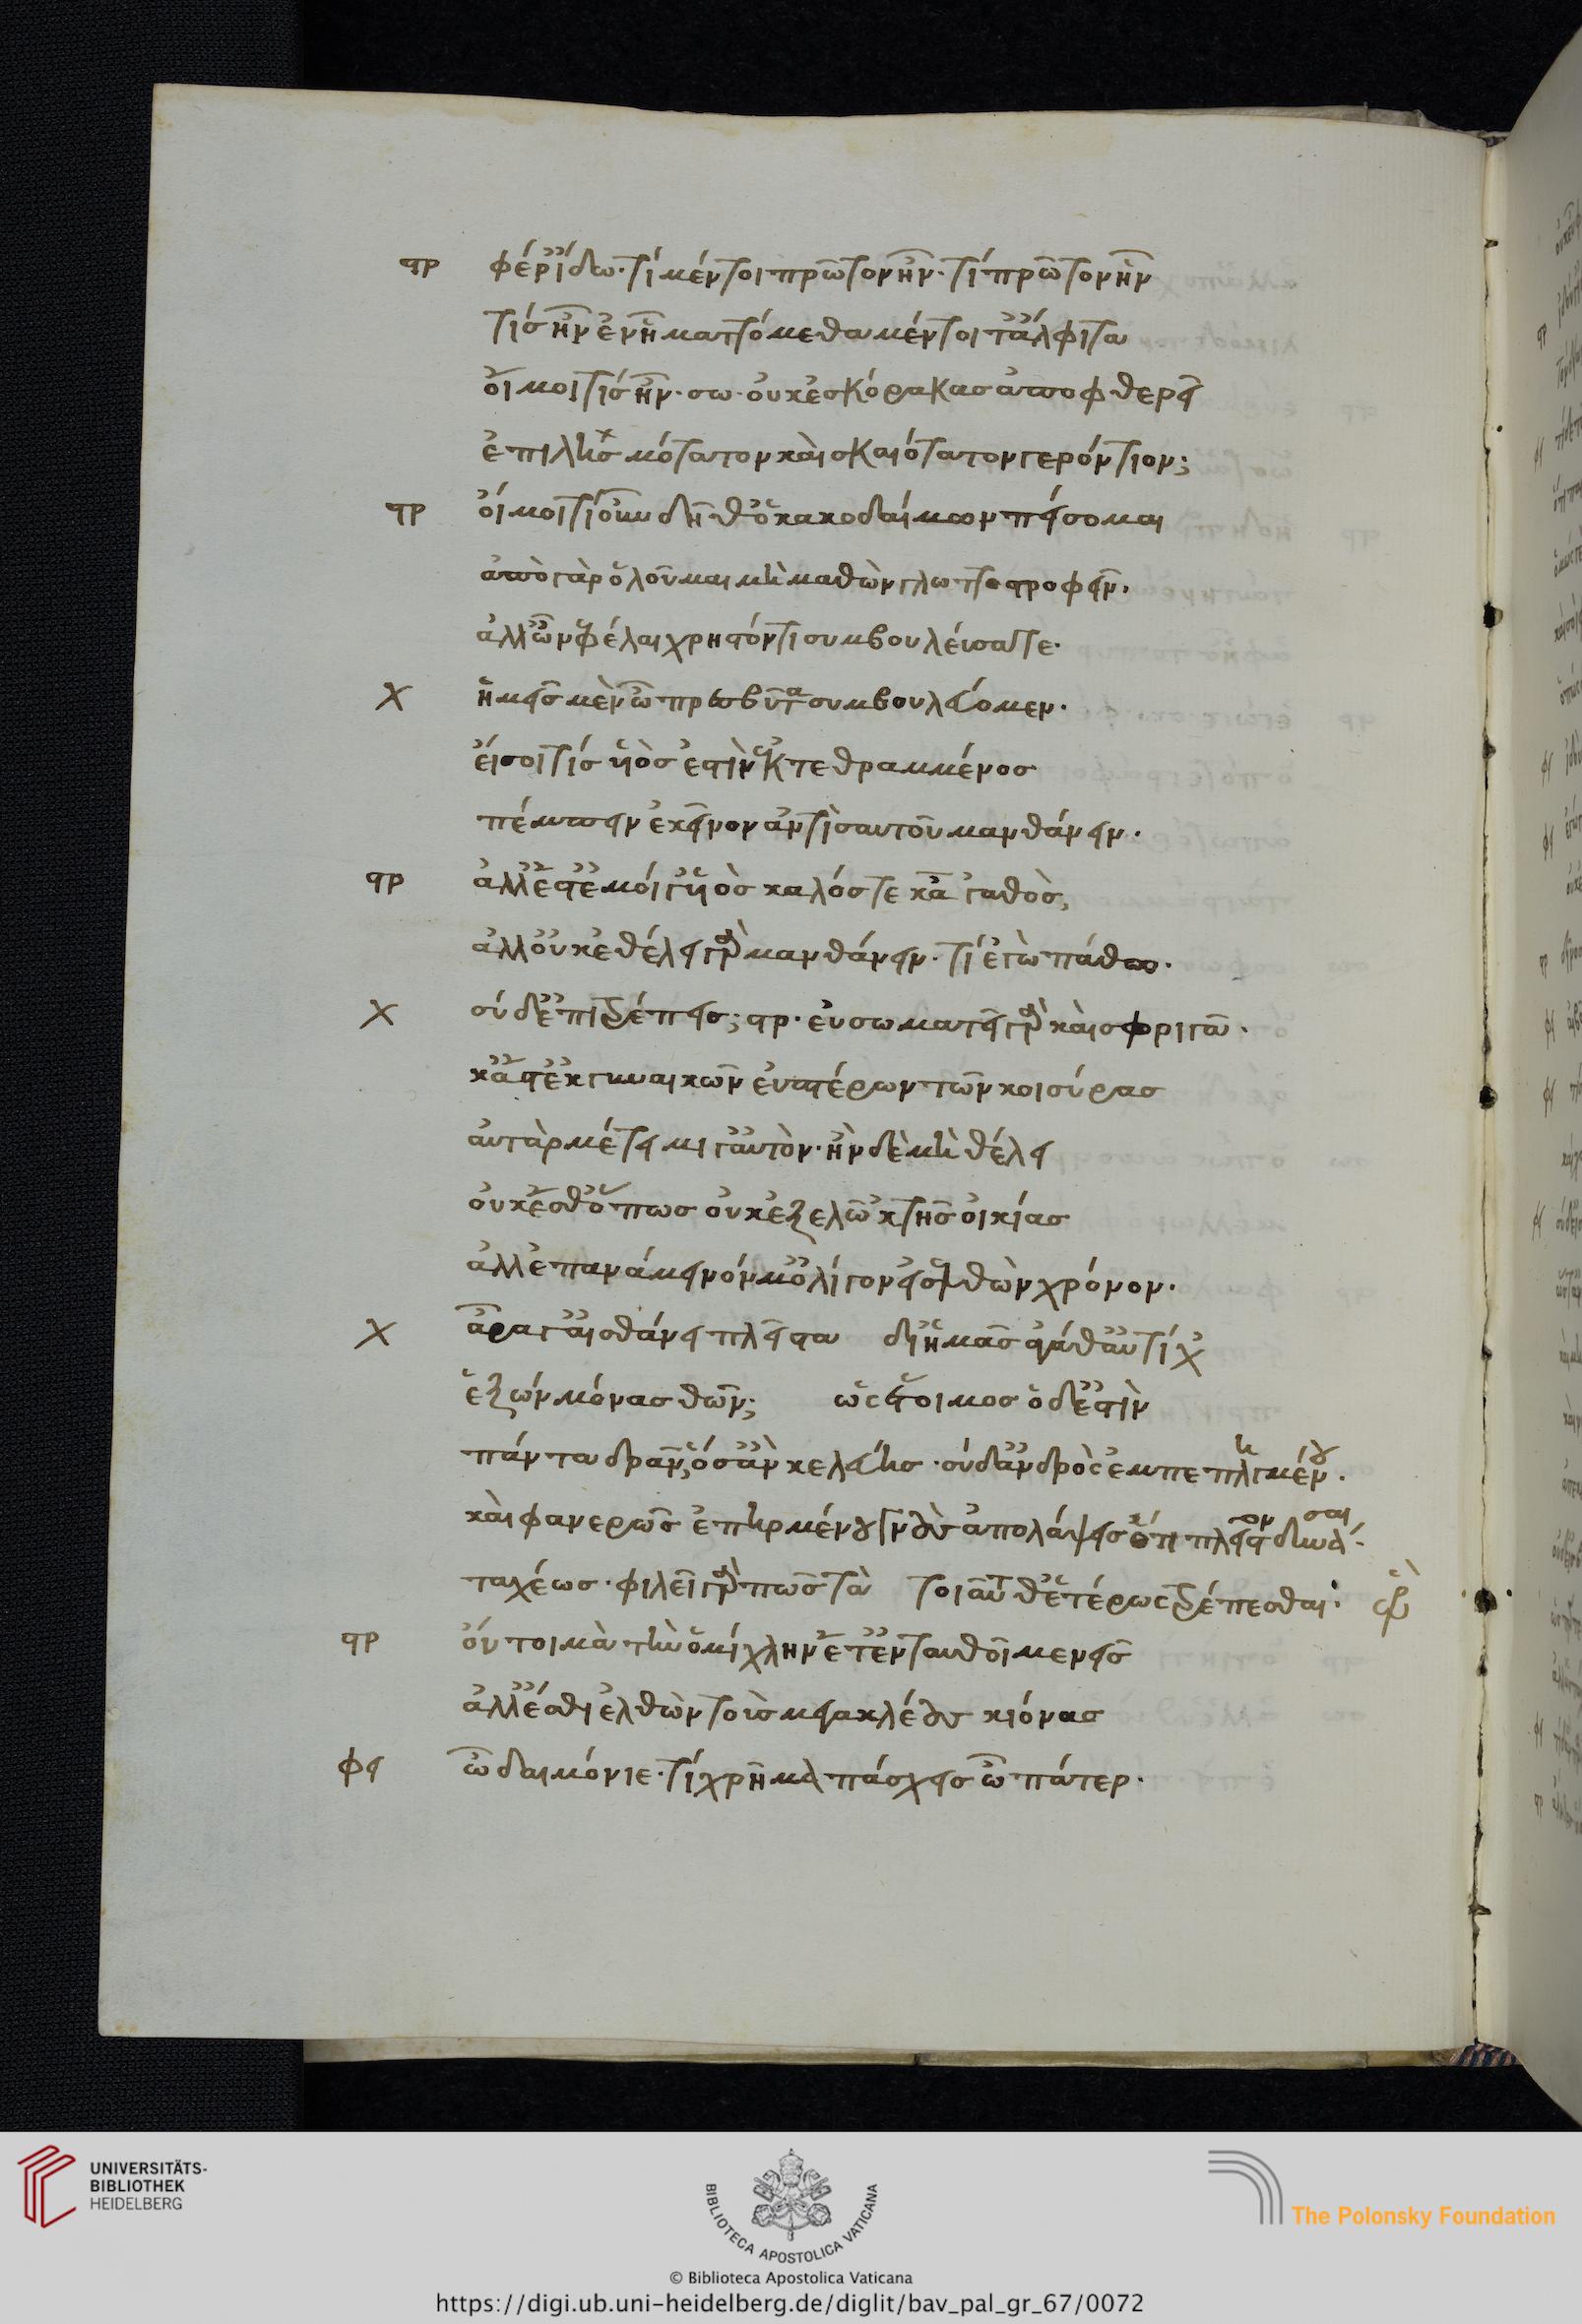 στρ φέρ' ἴδω· τί μέντοι πρῶτον ἦν· τί πρῶτον ἦν
τίς ἦν ἐν ᾗ ματτόμεθα μέντοι τἄλφιτα
οἴμοι τίς ἦν· σω· οὐκ ἐς κόρακας ἀποφθερεῖ
ἐπιλησμότατον καὶ σκαιότατον γερόντιον;
στρ οἴμοι τί οὖν δῆθ' ὁ κακοδαίμων πείσομαι
ἀπὸ γὰρ ὀλοῦμαι μὴ μαθὼν γλωττοστροφεῖν.
ἀλλ' ὦ νεφέλαι χρηστόν τι συμβουλεύσατε·
χ ἡμεῖς μὲν ὦ πρεσβῦτα συμβουλεύομεν·
εἴ σοι τίς υἱός ἐστιν ἐκτεθραμμένος
πέμπειν ἐκεῖνον ἀντὶ σαυτοῦ μανθάνειν.
στρ ἀλλ' ἔστ' ἔμοιγ' υἱὸς καλός τε κἀγαθὸς,
ἀλλ' οὐκ ἐθέλει γὰρ μανθάνειν· τί ἐγὼ πάθω.
χ σύ δ' ἐπιτρέπεις; στρ· εὐσωματεῖ γὰρ καὶ σφριγᾶ·
κἄστ' ἐκ γυναικῶν εὐπτέρων τῶν κοισύρας
ἀτὰρ μέτειμί γ' αὐτὸν· ἢν δὲ μὴ θέλει
οὐκ ἔσθ' ὅπως οὐκ ἐξελῶ 'κ τῆς οἰκίας
ἀλλ' ἐπανάμεινόν μ' ὀλίγον εἰσελθὼν χρόνον.
χ ἆρά γ' αἰσθάνει πλεῖστα δι' ἡμᾶς ἀγάθ' αὐτίχ'
ἕξων μόνας θεῶν; ὡς ἕτοιμος ὅδ' ἐστὶν
πάντα δρᾶν, ὅσ' ἂν κελεύης· σύ δ' ἀνδρὸς ἐκπεπληγμένου·
καὶ φανερῶς ἐπηρμένου γνοὺς ἀπολάψεις ὅ τι πλεῖστον δύνασαι
ταχέως· φιλεῖ γάρ πως τὰ τοιαῦθ' ἑτέρως τρέπεσθαι·
στρ οὔτοι μὰ τὴν ὁμίχλην ἔτ' ἐνταυθοῖ μενεῖς
ἀλλ' ἔσθι' ἐλθὼν τοὺς μεγακλέους κίονας
φει ὦ δαιμόνιε· τί χρῆμα πάσχεις ὦ πάτερ·
UNIVERSITÄTS-
BIBLIOTHEK
HEIDELBERG
BIBLIOTECA APOSTOLICA VATICANA
The Polonsky Foundation
© Biblioteca Apostolica Vaticana
https://digi.ub.uni-heidelberg.de/diglit/bav_pal_gr_67/0072